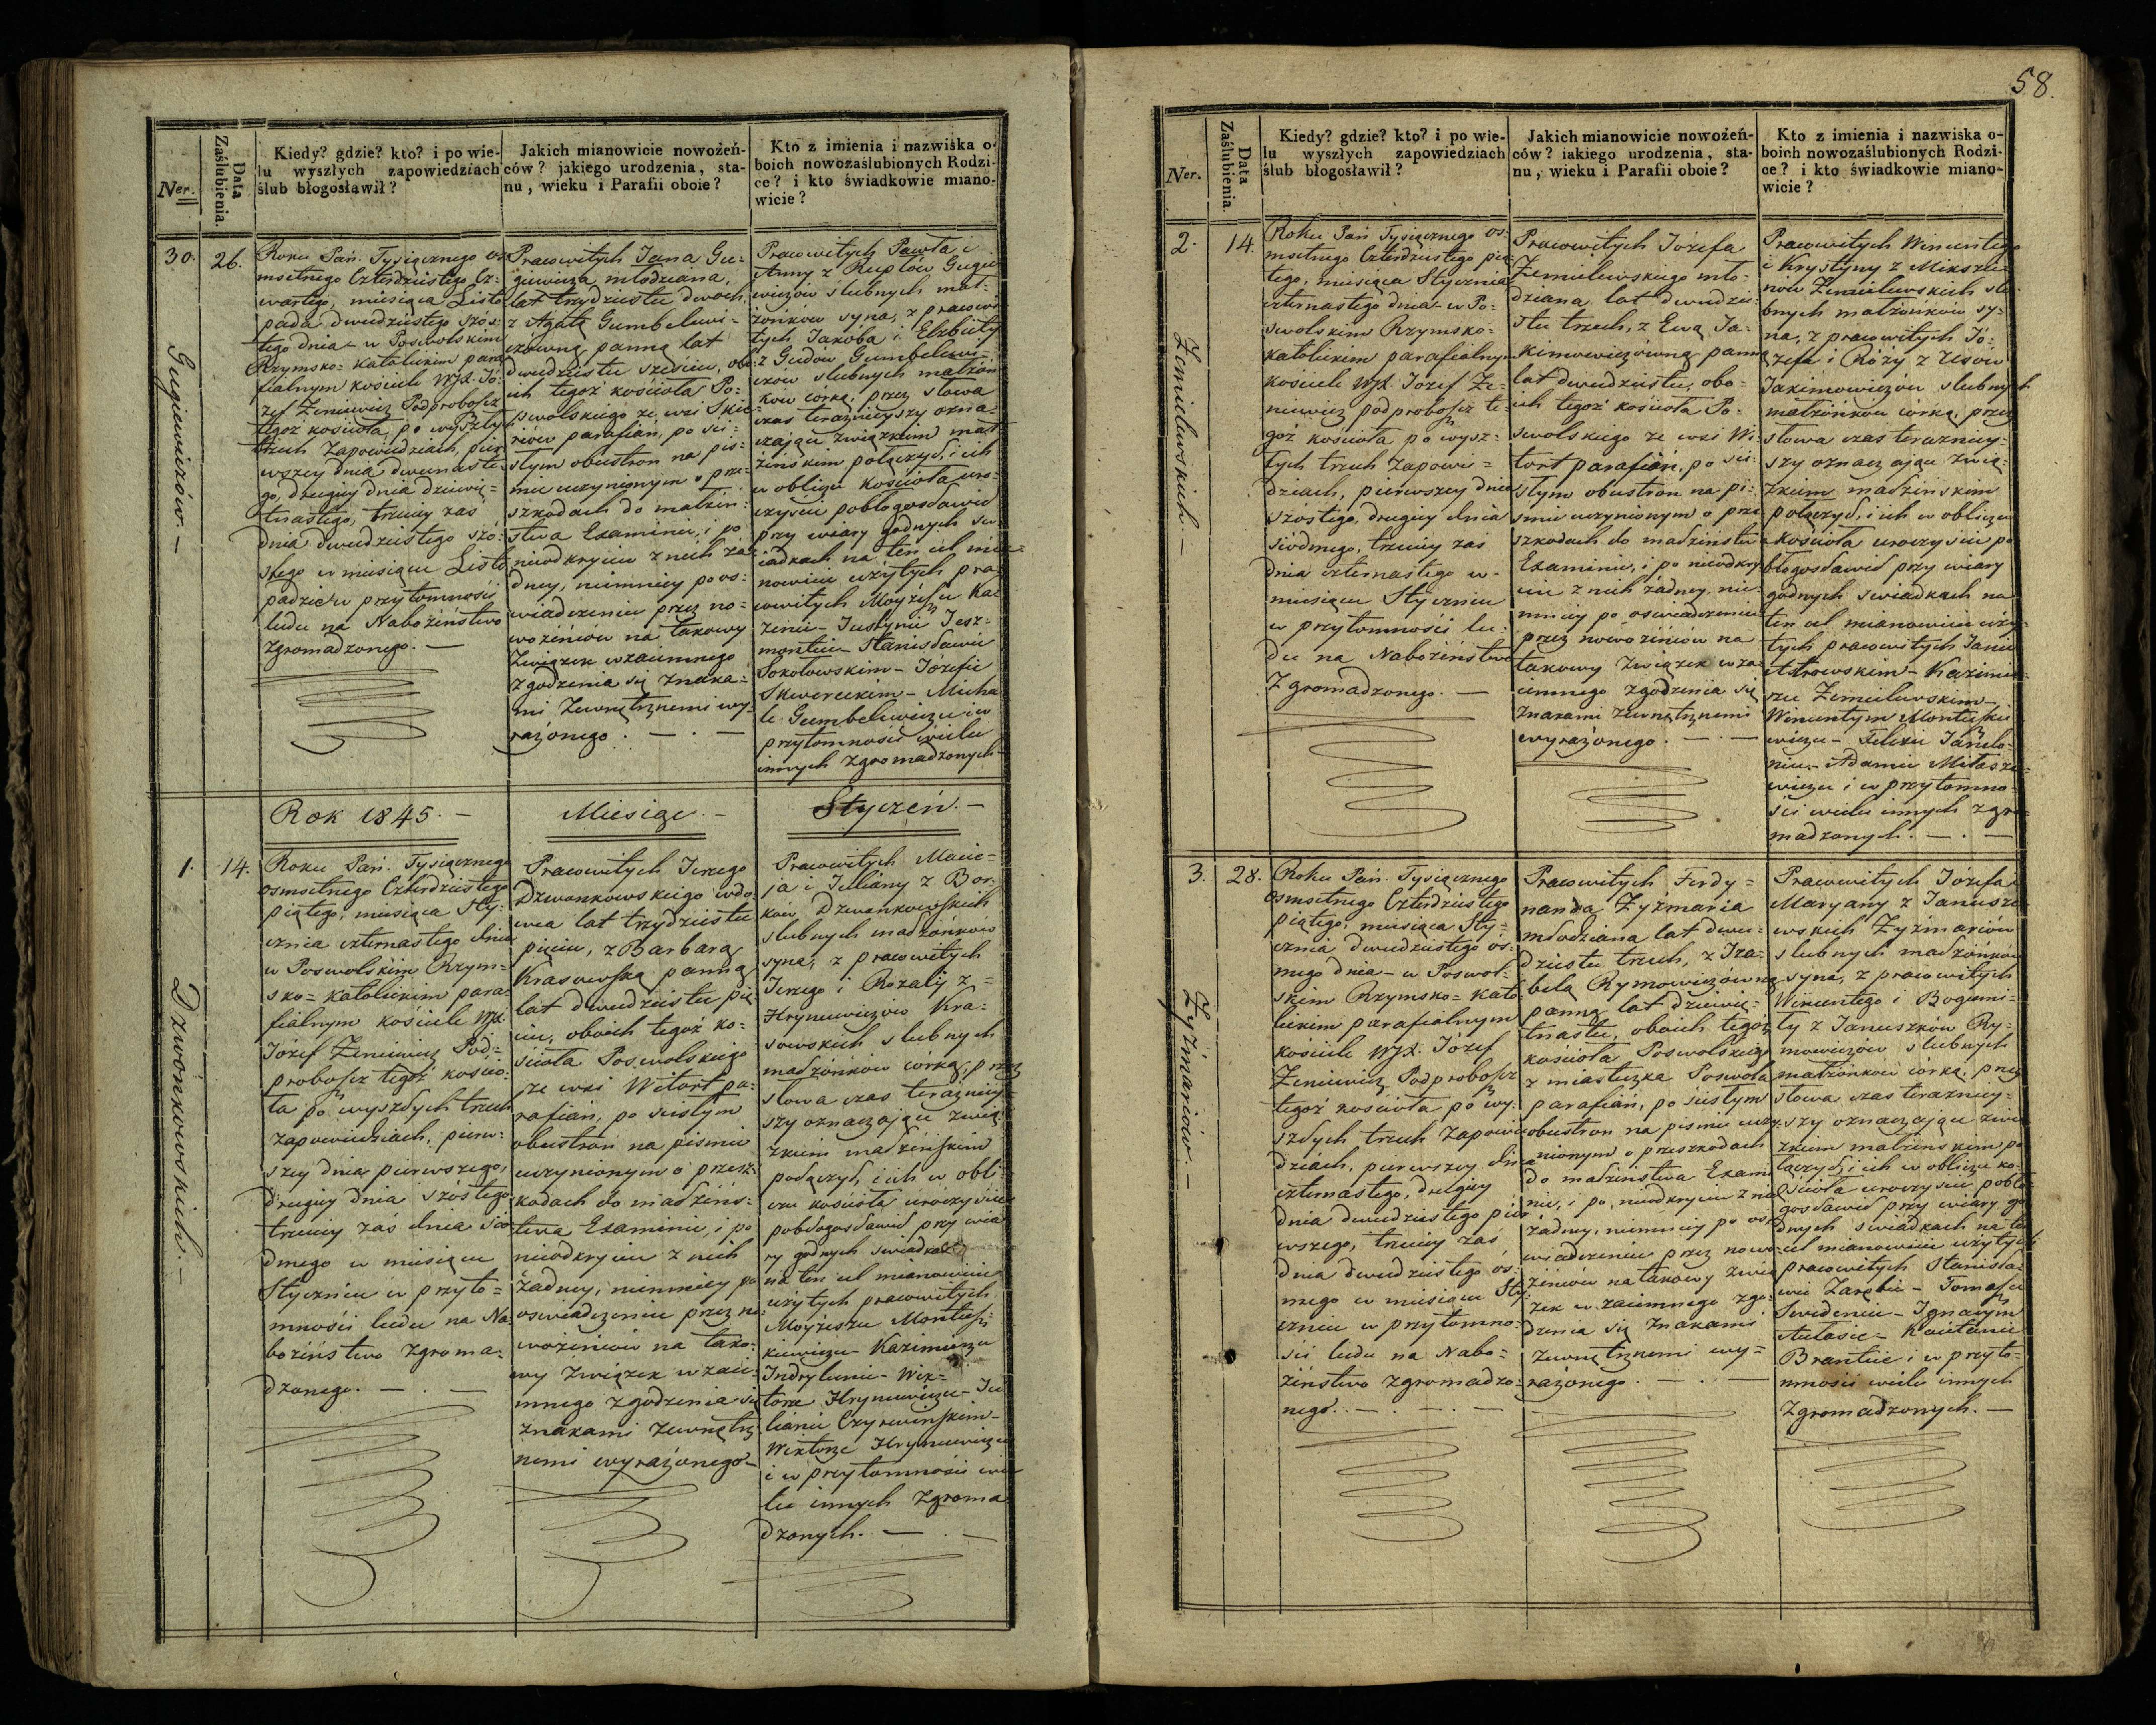 Ner.
Data
Zaślubienia.
Kiedy? gdzie? kto? i po wie-
lu wyszłych zapowiedziach
ślub błogosławił?
Jakich mianowicie nowożeń-
ców? jakiego urodzenia, sta-
nu, wieku i Parafii oboie?
Kto z imienia i nazwiśka o-
boich nowozaślubionych Rodzi-
ce? i kto świadkowie miano-
wicie?
30.
26.
Gugiewiczów. —
Roku Pań. Tysiącznego ós=
msetnego Czterdziestego Cz=
wartego, miesiąca Listo
pada dwudziestego szós=
tego dnia - w Poswolskim
Rzymsko= Katolickim para
fialnym kościele WJX. Jó=
zef Zeniewicz Podproboszcz
tegoż kościoła, po wyszłych
trzech Zapowiedziach, pier
wszey dnia dwunaste
go, drugiey dnia dziewię=
tnastego, trzeciey zaś
dnia dwudziestego szó=
stego w miesiącu Listo
padzie w przytomności
ludu na Nabożeństwo
zgromadzonego. —
Pracowitych Jana Gu=
giewicza młodziana,
lat trzydziestu dwóch,
z Agatą Gumbelewi=
czówną panną lat
dwudziestu sześciu, obo=
ich tegoż kościoła Po=
swolskiego ze wsi Skie=
rów parafian, po ści=
słym obustron na piś=
mie uczynionym o prze=
szkodach do małżeń=
stwa Examinie, i po
nieodkryciu z nich ża=
dney, niemniey po os=
wiadczeniu przez no=
wożeńców na takowy
Związek wzaiemnego
zgodzenia się znaka=
mi zewnętrznemi wy=
rażonego. — . —
Pracowitych Pawła i
Anny z Ruplów Gugie
wiczów ślubnych mał=
żonków syna, z pracowi
tych Jakóba i Elżbiety
z Gudów Gumbelewi=
czów ślubnych małżon
ków córką, przez słowa
czas teraźnieyszy ozna=
czaiące związkiem mał
żeńskim połączył, i ich
w obliczu kościoła uro=
czyście pobłogosławił
przy wiary godnych św
iadkach na ten cel mia=
nowicie użytych pra=
cowitych Moyżeszu Ka=
zeniu - Justynie Jesz=
montcie - Stanisławie
Sokołowskim - Józefie
Skwereckim - Micha
le Gumbelewiczu i w
przytomności wielu
innych zgromadzonych -
Rok 1845. —
Miesiąc. —
Styczeń. —
1.
14.
Dzwonkowskich. —
Roku Pań. Tysiącznego
osmsetnego Czterdziestego
piątego, miesiąca Sty=
cznia czternastego dnia
w Poswolskim Rzym=
sko= katolickim para=
fialnym kościele WJX.
Józef Zeniewicz Pod=
proboszcz tegoż kościo=
ła po wyszłych trzech
zapowiedziach, pierw=
szey dnia pierwszego,
drugiey dnia szóstego
trzeciey zaś dnia sió
dmego w miesiącu
Styczniu w przyto=
mności ludu na Na=
bożeństwo zgroma=
dzonego. — . —
Pracowitych Jerzego
Dzwonkowskiego wdo
wca lat trzydziestu
pięciu, z Barbarą
Krasowską panną
lat dwudziestu pię
ciu, oboich tegoż ko=
ścioła Poswolskiego
ze wsi Witort pa=
rafian, po ścisłym
obustron na piśmie
uczynionym o przesz=
kodach do małżeńs=
twa Examinie, i po
nieodkryciu z nich
żadney, niemniey po
oswiadczeniu przez no=
wożeńców na tako=
wy Związek wzaie=
mnego zgodzenia się
znakami zewnętrz
nemi wyrażonego —
Pracowitych Macie=
ja i Julliany z Bor=
ków Dzwonkowskich
ślubnych małżonków
syna, z pracowitych
Jerzego i Rozalij z =
Hryncewiczów Kra=
sowskich ślubnych
małżonków córką, przez
słowa czas teraźniey=
szy oznaczaiące zwią
zkiem małżeńskim
połączył, i ich w obli=
czu kościoła uroczyście
pobłogosławił przy wia
ry godnych świadkach
na ten cel mianowicie
użytych pracowitych
Moyżeszu Montosz
kiewiczu - Kazimierzu
Jndryluniu - Wik=
torze Hryncewiczu - Ju
lianie Czyrewinskim -
Wiktorze Hryncewiczu
i w przytomności wie
lu innych zgroma
dzonych. — . —
58.
Ner.
Data
Zaślubienia.
Kiedy? gdzie? kto? i po wie-
lu wyszłych zapowiedziach
ślub błogosławił?
Jakich mianowicie nowożeń-
ców? iakiego urodzenia, sta-
nu, wieku i Parafii oboie?
Kto z imienia i nazwiska o-
boich nowozaślubionych Rodzi-
ce? i kto świadkowie miano-
wicie?
2.
14.
Zemielewskich. —
Roku Pań Tysiącznego os=
msetnego Czterdziestego pią
tego, miesiąca Stycznia
czternastego dnia - w Po=
swolskim Rzymsko=
katolickim parafialnym
kościele WJX. Józef Ze=
niewicz podproboszcz te=
goż kościoła po wysz=
łych trzech Zapowie=
dziach, pierwszey dnia
szóstego, drugiey dnia
siódmego, trzeciey zaś
dnia czternastego w
miesiącu Styczniu
w przytomności lu=
du na Nabożeństwo
Zgromadzonego. —
Pracowitych Józefa
Zemielewskiego mło=
dziana lat dwudzie=
stu trzech, z Ewą Ja=
kimowiczówną panną
lat dwudziestu, obo=
ich tegoż kościoła Po=
swolskiego ze wsi Wi=
tort parafian, po ści=
słym obustron na pi=
śmie uczynionym o prze
szkodach do małżeństw
Examinie, i po nieodkry
ciu z nich żadney, nie=
mniey po oświadczeniu
przez nowożeńców na
takowy Związek wza=
iemnego zgodzenia się
znakami zewnętrznemi
wyrażonego. — . —
Pracowitych Wincentego
i Krystyny z Mikszu=
nów Zemielewskich ślu
bnych małżonków sy=
na, z pracowitych Jó=
zefa i Róży z Usów
Jakimowiczów ślubnych
małżonków córką, przez
słowa czas teraźniey=
szy oznaczaiące zwią=
zkiem małżeńskim
połączył, i ich w obliczu
kościoła uroczyście po
błogosławił przy wiary
godnych świadkach na
ten cel mianowicie uży=
tych pracowitych Janie
Astrowskim - Kazimie=
rzu Zemielewskim -
Wincentym Montuszkie
wiczu - Felixie Januło=
niu - Adamie Miłasze=
wiczu i w przytomno=
ści wielu innych zgro
madzonych. — . —
3.
28.
Zyżmariów. —
Roku Pań. Tysiącznego
osmsetnego Czterdziestego
piątego, miesiąca Sty=
cznia dwudziestego ós=
mego dnia - w Poswol=
skim Rzymsko= Kato
lickim parafialnym
kościele WJX. Józef
Zeniewicz Podproboszcz
tegoż kościoła po wy=
szłych trzech Zapowie
dziach, pierwszey dnia
czternastego, drugiey
dnia dwudziestego pier
wszego, trzeciey zaś
dnia dwudziestego ós=
mego w miesiącu Sty=
czniu w przytomno=
ści ludu na Nabo=
żeństwo zgromadzo=
nego. — . — . —
Pracowitych Ferdy=
nanda Zyżmaria
młodziana lat dwu=
dziestu trzech, z Iza=
belą Rymowiczówną
panną lat dziewię=
tnastu, oboich tegoż
kościoła Poswolskiego
z miasteczka Poswola
parafian, po ścisłym
obustron na piśmie uczy
nionym o przeszkodach
do małżeństwa Exami
nie, i po nieodkryciu z nich
żadney, niemniey po oś
wiadczeniu przez nowo
żeńców na takowy zwią
zek wzaiemnego zgo=
dzenia się znakami
zewnętrznemi wy=
rażonego. — . —
Pracowitych Józefa i
Maryany z Janusze
wskich Zyżmariów
ślubnych małżonków
syna, z pracowitych
Wincentego i Bogumi=
ły z Januszków Ry=
mowiczów ślubnych
małżonków córką, przez
słowa czas teraźniey=
szy oznaczaiące zwią
zkiem małżeńskim po
łączył, i ich w obliczu ko=
ścioła uroczyście pobło
gosławił przy wiary go
dnych świadkach na ten
cel mianowicie użytych
pracowitych Stanisła=
wie Zarębie - Tomaszu
Swideniu - Ignacym
Aułasie - Kaietanie
Brantcie i w przyto=
mności wielu innych
Zgromadzonych. —